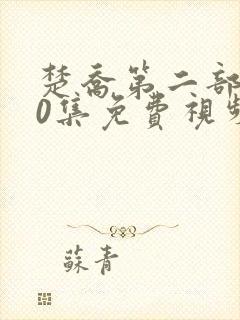 楚喬第二部
0集免費視頻
蘇青